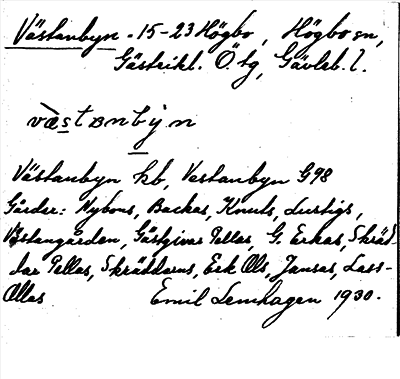 Västanbyn - 15-23 Högbo, Högbo sn,
Gästrikl. Ö. tg, Gävleb. l.
væstanbyn
Västanbyn kb, Vestanbyn G98
Gårder: Nybons, Backas, Knuts, Lustigs,
Västangården, Gästgivar Pellas, G. Erkas, Skräd-
dar Pellas, Skräddarns, Erk Ols, Jansas, Lass-
Ollas Emil Lemhagen 1930.